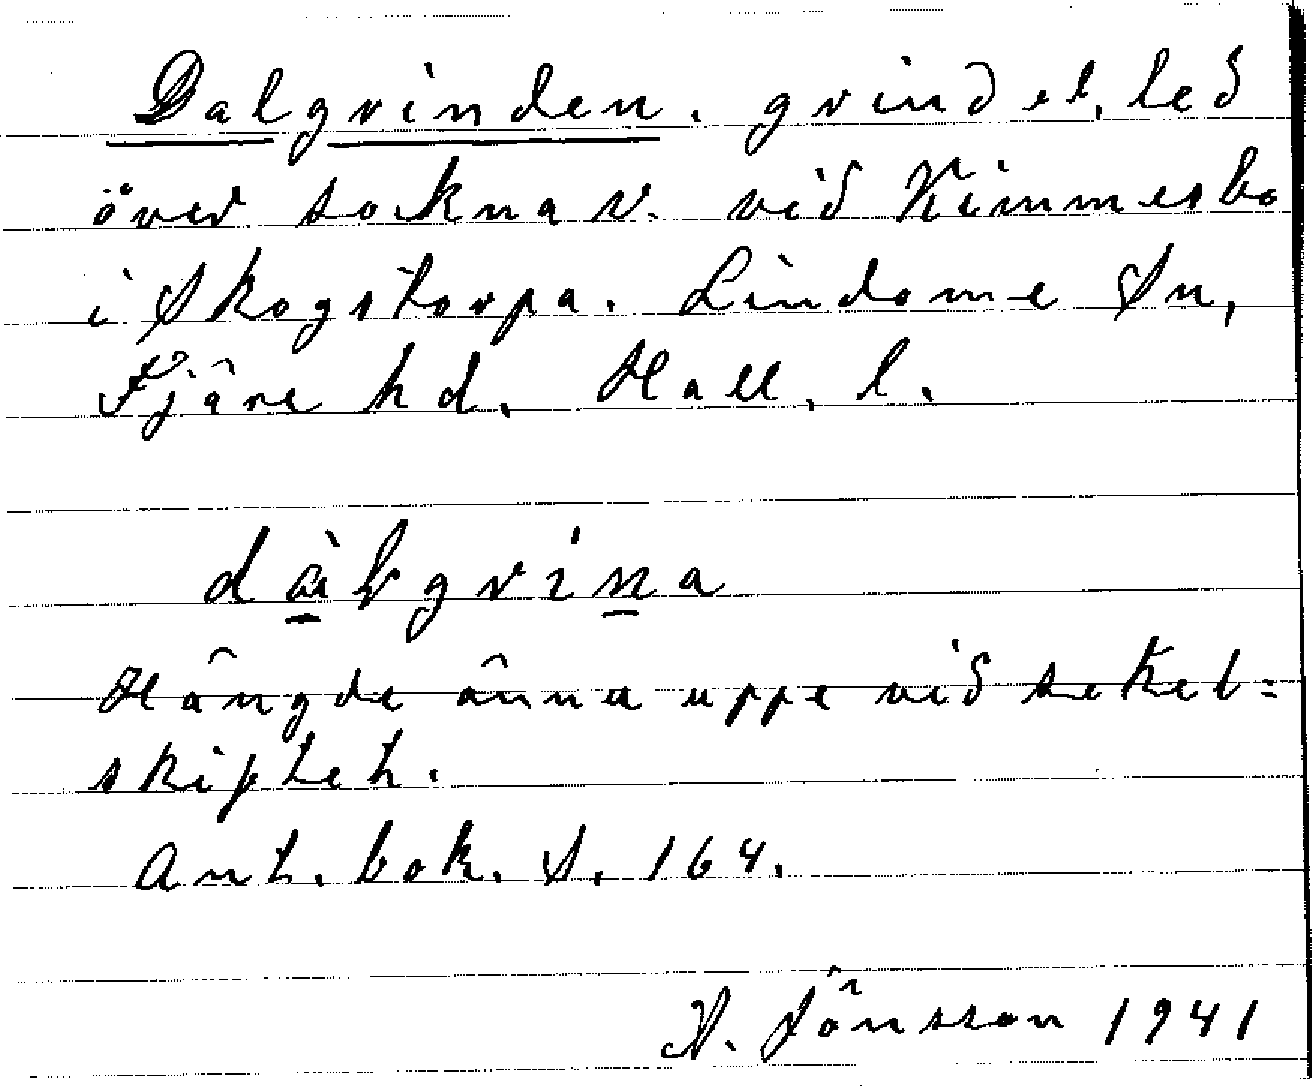 Dalgrinden. grind el. led
över socknav. vid Kimmesbo
i Skogstorpa. Lindome Sn,
Fjäre hd. Hall. l.
Hängde ännu uppe vid sekel=
skiftet.
Ant. bok. S. 164.
N. Jönsson 1941